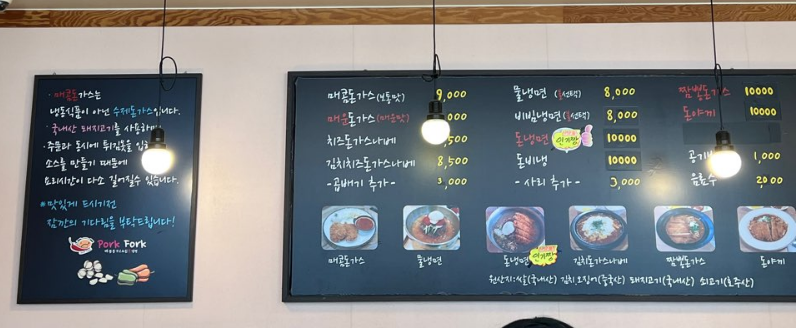 · 매콤돈가스는
냉동식품이 아닌 수제돈가스입니다.
· 국내산 돼지고기를 사용하며
· 주문과 동시에 튀김옷을 입히
소스를 만들기 때문에
요리시간이 다소 길어질수 있습니다.
#맛있게 드시기전
잠깐의 기다림을 부탁드립니다!
Pork Fork
매콤돈가스(보통맛) 9,000
매운돈가스(매운맛)
치즈돈가스나베
김치치즈돈가스나베 8,500
-곱배기 추가- 3,000
물냉면 8,000
비빔냉면 8,000
돈냉면 인기짱 10000
돈비냉 10000
-사리 추가- 3,000
짬뽕돈가스 10000
돈야끼 10000
공기밥 1,000
음료수 2,000
매콤돈가스
물냉면
돈냉면 인기짱
김치돈가스나베
짬뽕돈가스
돈야끼
원산지:쌀(국내산) 김치,오징어(중국산) 돼지고기(국내산) 쇠고기(호주산)